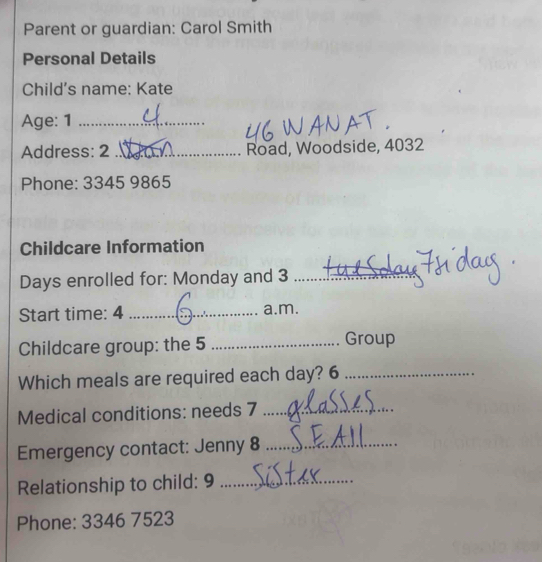 Parent or guardian: Carol Smith
Personal Details
Child's name: Kate
Age: 1 ........4........
46 WANAT.
Address: 2 ................ Road, Woodside, 4032
Phone: 3345 9865
Childcare Information
Days enrolled for: Monday and 3 ........tuesday Friday.
Start time: 4 ........6........ a.m.
Childcare group: the 5 ................ Group
Which meals are required each day? 6 ................
Medical conditions: needs 7 .....glasses....
Emergency contact: Jenny 8 .....SEAll.....
Relationship to child: 9 .......Sister.......
Phone: 3346 7523